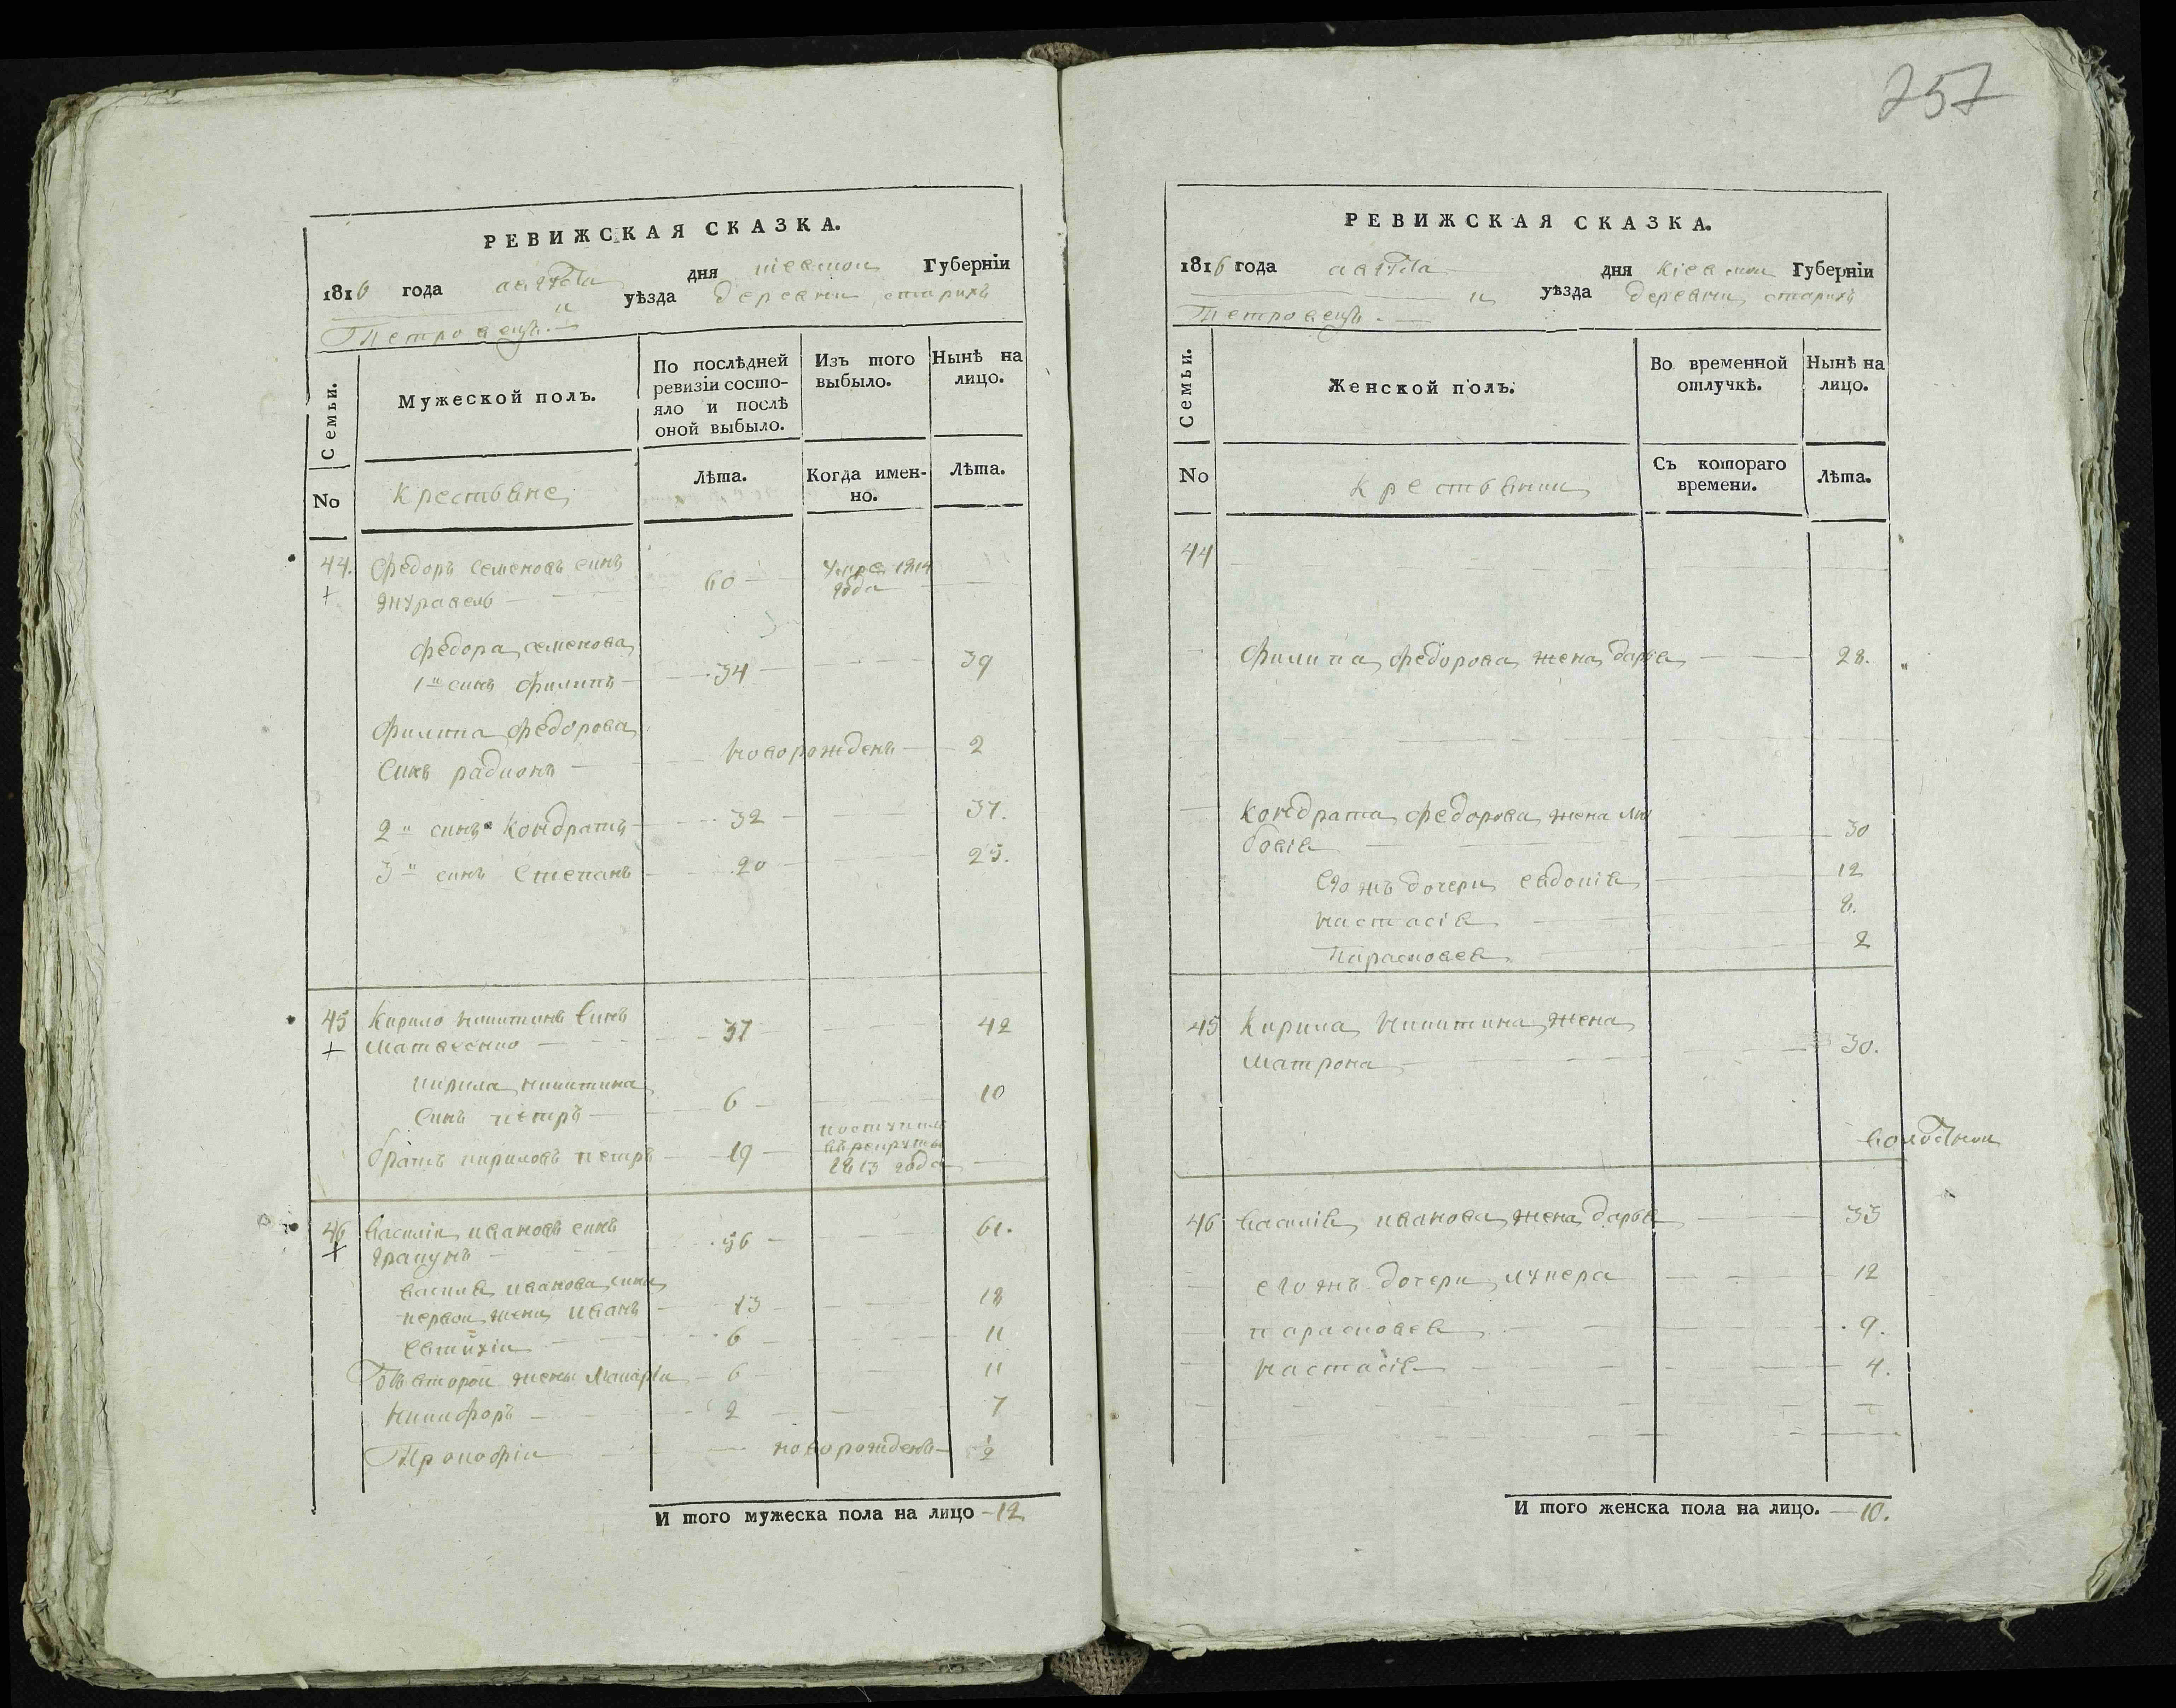 257
РЕВИЖСКАЯ СКАЗКА.
1816 года августа дня киевской Губерніи
и уѣзда деревни старихъ
Петровецъ.
Семьи.
Мужеской полъ.
По послѣдней ревизіи состо-
яло и послѣ оной выбыло.
Изъ того выбыло.
Нынѣ на лицо.
No
крестьяне
Лѣта.
Когда имен-
но.
Лѣта.
44. Федоръ семеновъ синъ
журавель 60 умре 1814 года
федора семенова
1й синъ филипъ 34 39
Филипа федорова
синъ радионъ новорожденъ 2
2й синъ Кондратъ 32 37.
3й синъ Степанъ 20 25.
45 Кирило никитинъ синъ
37 42
кирила никитина
синъ петръ 6 10
братъ кириловъ петръ 19 поступилъ въ рекруты 1813 года
46 Василій ивановъ синъ
56 61.
василія иванова сини
первой жени иванъ 13 18
Евтихій 6 11
отъ второй жены 6 11
никифоръ 2 7
Прокофій новорожденъ 1/2
И того мужеска пола на лицо 12
РЕВИЖСКАЯ СКАЗКА.
1816 года августа дня кіевской Губерніи
и уѣзда деревни старихъ
Петровецъ.
Семьи.
Женской полъ.
Во временной отлучкѣ.
Нынѣ на лицо.
No
крестьянки
Съ котораго времени.
Лѣта.
44
Филипа федорова жена дарья 28.
Кондрата федорова жена лю
бовія 30
его жъ дочери евдокія 12
настасія 8.
параскевея 2
45 Кирила никитина жена
матрона 30.
46 василія иванова жена дарья 33
его жъ дочери лукера 12
параскевея 9.
настасія 4.
И того женска пола на лицо. 10.